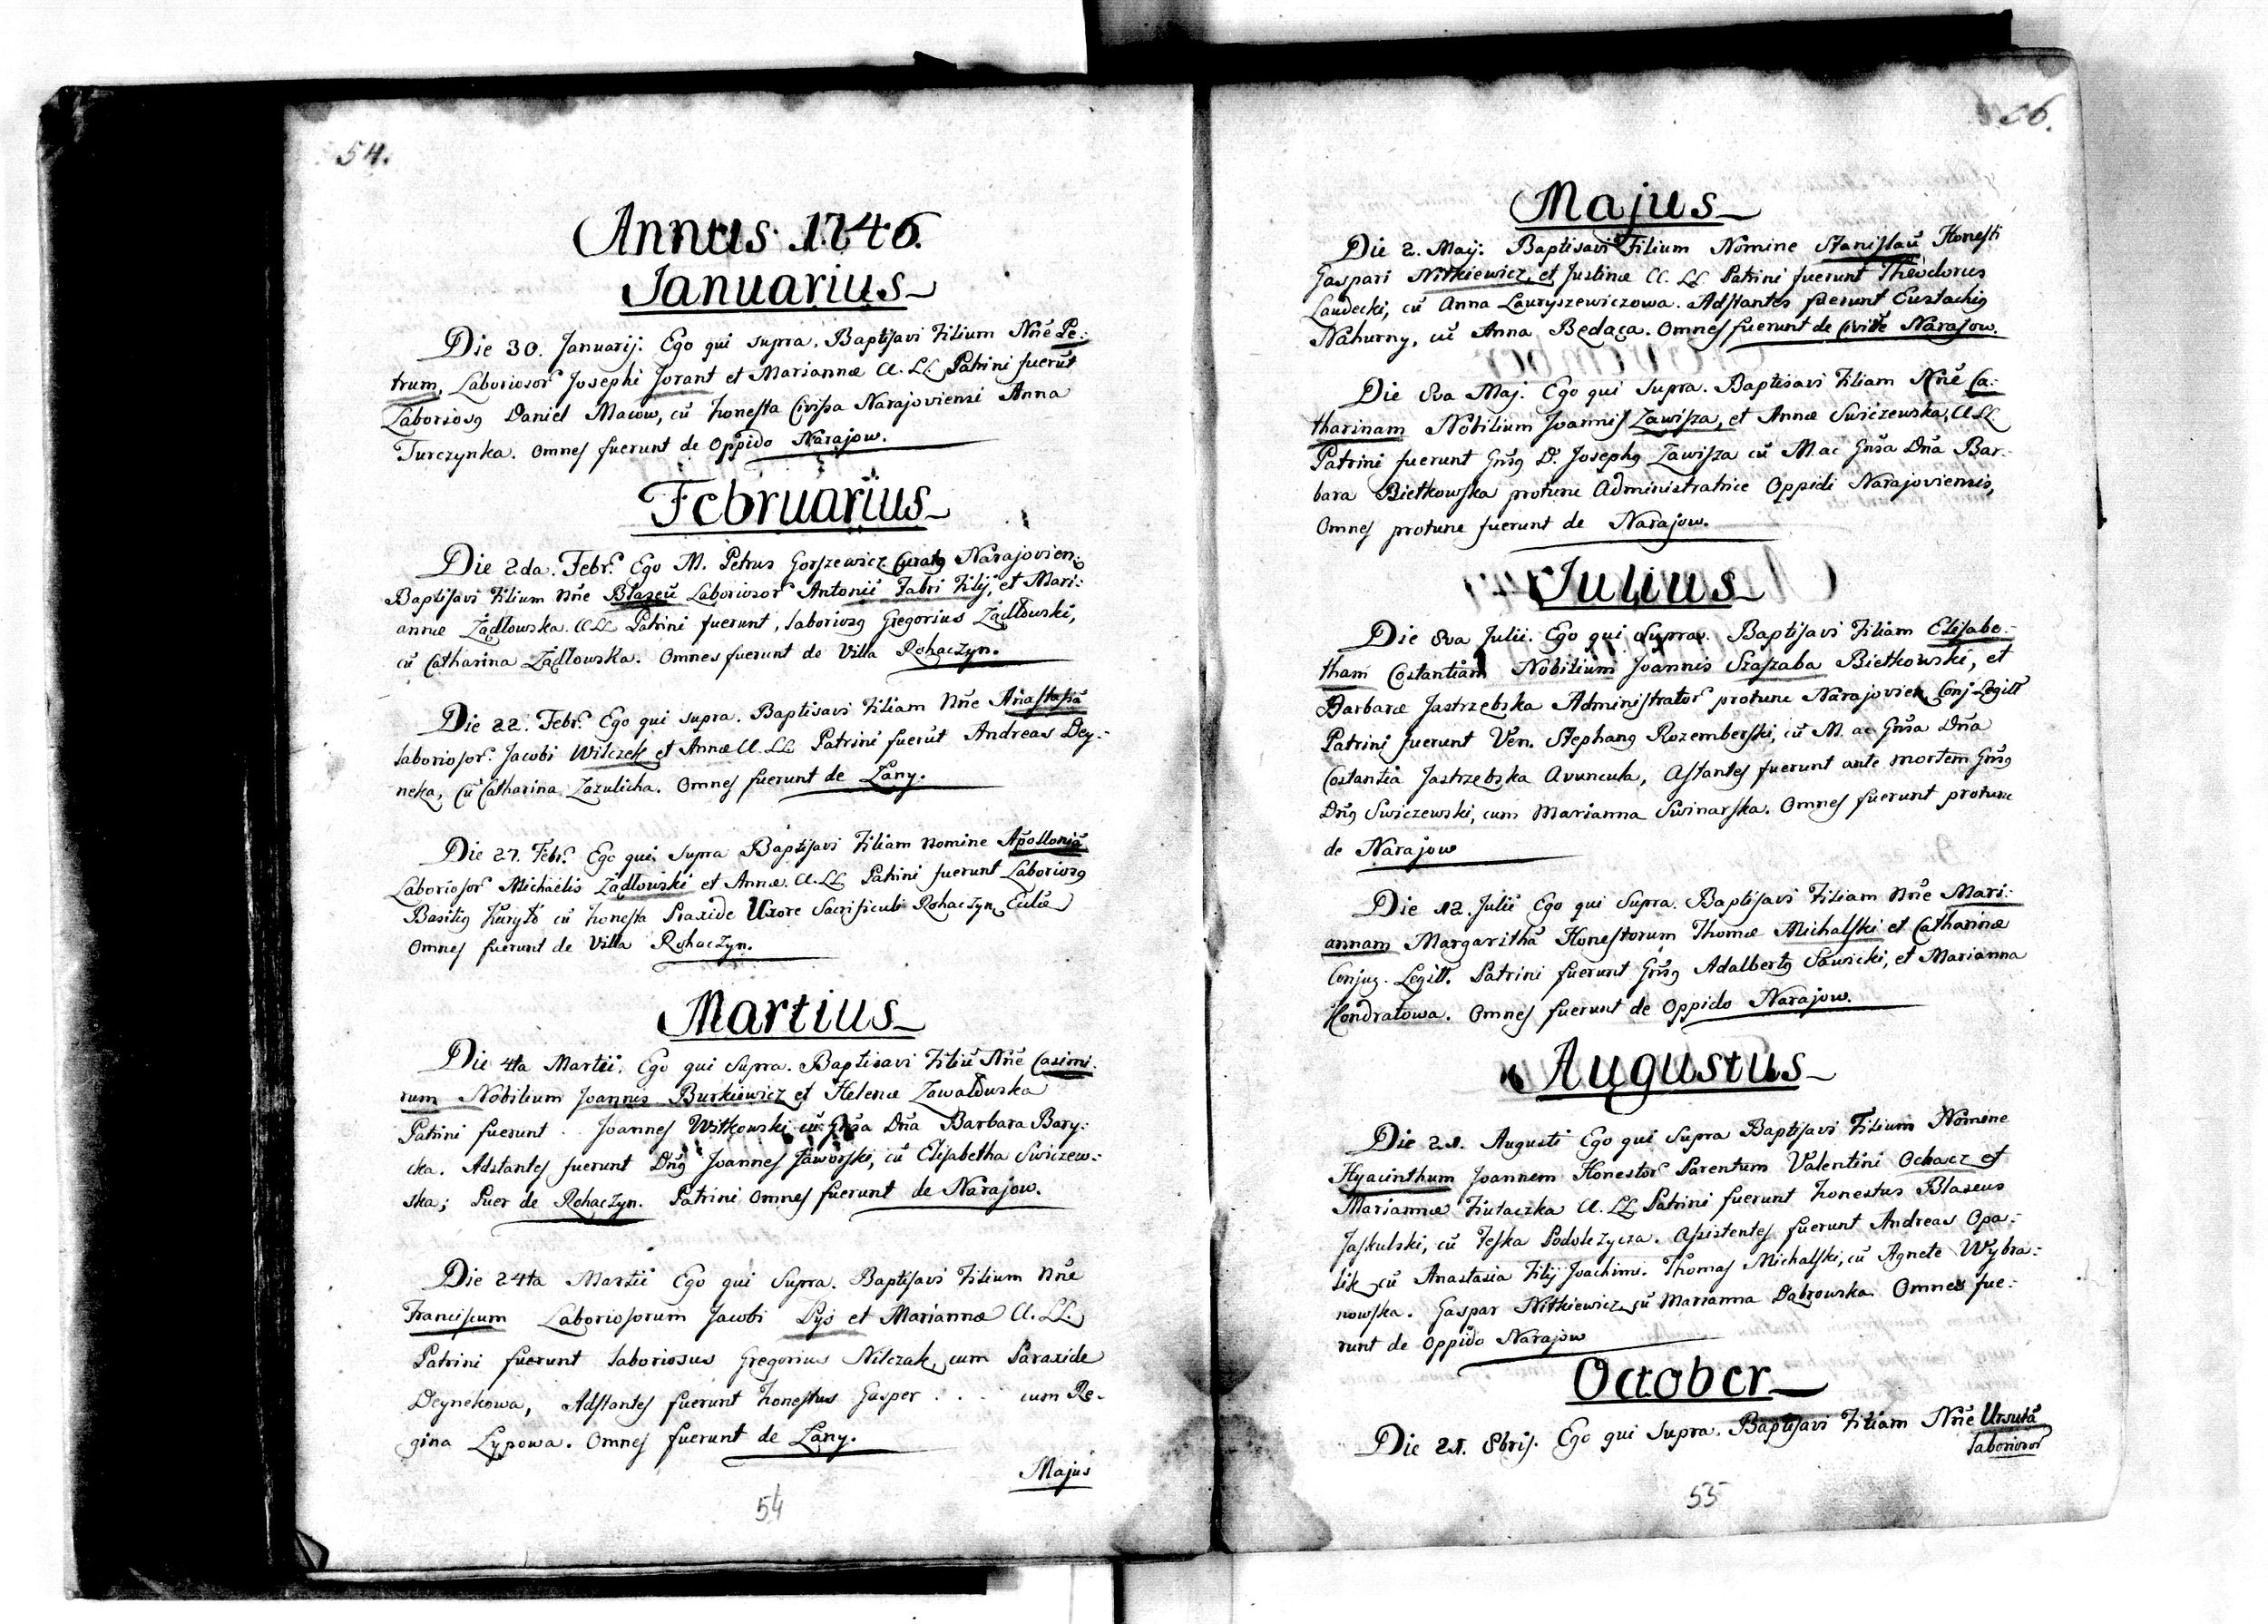 54.
Annus 1746.
Januarius
Die 30. Januarij. Ego qui supra. Baptisavi Filium Nñe Pe:
trum, Laboriosor Josephi Jorant et Mariannæ C. LL. Patrini fuerũt
Laboriosg Daniel Macow, cũ honesta Civissa Narajoviensi Anna
Turczynka. Omnes fuerunt de Oppido Narajow.
Februarius
Die 2da. Febr. Ego M. Petrus Gorszewicz Curatg Narajovien:
Baptisavi Filium Nñe Blaseũ Laboriosor Antonii Fabri Filij, et Mari:
annæ Ządłowska. C LL Patrini fuerunt, Laboriosg Gregorius Ządłowski,
cũ Catharina Ządłowska. Omnes fuerunt de Villa Rohaczyn.
Die 22. Febr. Ego qui supra. Baptisavi Filiam Nñe Anastasiã
Laboriosor. Jacobi Wilczek et Annæ C. LL Patrini fuerũt Andreas Dey:
neka, cũ Catharina Zazulicha. Omnes fuerunt de Łany.
Die 27. Febr. Ego qui supra Baptisavi Filiam Nomine Apolloniã
Laboriosor Michaëlis Ządłowski et Annæ. C. LL Patrini fuerunt Laboriosg
Basilig Kuryło cũ honesta Praxide Uxore Sacrificuli Rohaczyn. Eccliæ
Omnes fuerunt de Villa Rohaczyn.
Martius
Die 4ta Martii. Ego qui Supra. Baptisavi Filiũ Nñe Casimi:
rum Nobilium Joannis Burkiewicz et Helenæ Zawałduska
Patrini fuerunt . . Joannes Witkowski cũ Gñsa Dña Barbara Bary:
cka. Adstantes fuerunt Dñg Joannes Jaworski, cũ Elisabetha Swiczew:
ska; Puer de Rohaczyn. Patrini Omnes fuerunt de Narajow.
Die 24ta Martii Ego qui Supra. Baptisavi Filium Nñe
Franciscum Laboriosorum Jacobi Pys et Mariannæ C. LL.
Patrini fuerunt laboriosus Gregorius Nilczak, cum Paraxide
Deynekowa, Adstantes fuerunt honestus Gasper . . . cum Re-
gina Lypowa. Omnes fuerunt de Łany.
Majus
54
56.
Majus
Die 2. Maij: Baptisavi Filium Nomine Stanislaũ Honesti
Gaspari Nitkiewicz, et Justinæ C. LL Patrini fuerunt Theodorus
Laudecki, cũ Anna Lauryszewiczowa. Adstantes fuerunt Eustachig
Nahurny, cũ Anna Będąca. Omnes fuerunt de Civitẽ Narajow.
Die 8va Maj. Ego qui Supra. Baptisavi Filiam Nñe Ca:
tharinam Nobilium Joannis Zawisza, et Annæ Swiczewska, C LL
Patrini fuerunt Gñsg D. Josephg Zawisza cũ M. ac Gñsa Dña Bar:
bara Bietkowska protunc Administratrice Oppidi Narajoviensis,
Omnes protunc fuerunt de Narajow.
Julius
Die 8va Julii. Ego qui Supra. Baptisavi Filiam Elisabe:
tham Costantiam Nobilium Joannis Szaszaba Bietkowski, et
Barbaræ Jastrzębska Administrator protunc Narajovien Conj Legitt
Patrini fuerunt Ven. Stephang Rozemberski, cũ M. ac Gñsa Dña
Costantia Jastrzębska Avuncula, Astantes fuerunt ante mortem Gñsg
Dñg Swiczewski, cum Marianna Swinarska. Omnes fuerunt protunc
de Narajow
Die 12. Julii Ego qui Supra. Baptisavi Filiam Nñe Mari:
annam Margarithã Honestorum Thomæ Michalski et Catharinæ
Conjug. Legitt. Patrini fuerunt Gñsg Adalbertg Sawicki, et Marianna
Kondratowa. Omnes fuerunt de Oppido Narajow.
Augustus
Die 21. Augusti Ego qui Supra Baptisavi Filium Nomine
Hyacinthum Joannem Honestor Parentum Valentini Ochacz et
Mariannæ Fiutaczka C. LL Patrini fuerunt honestus Blaseus
Jaskulski, cũ Feska Podolczycza. Assistentes fuerunt Andreas Opa:
lik cũ Anastasia Filij Joachimi. Thomas Michalski, cũ Agnete Wybra:
nowska. Gaspar Nitkiewicz, cũ Marianna Dąbrowska. Omnes fue:
runt de Oppido Narajow
October
Die 21. 8bris. Ego qui Supra. Baptisavi Filiam Nñe Ursulã
Laboriosor
55